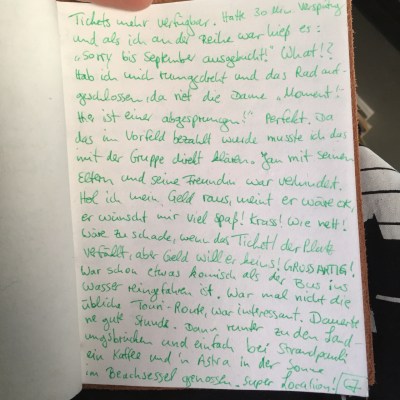 Tickets mehr verfügbar. Hatte 30 Min Verspätung
und als ich an der Reihe war hieß es:
„Sorry bis September ausgebucht!" What!?
Hab ich mich rumgedreht und das Rad auf-
geschlossen, da rief die Dame „Moment!
Hier ist einer abgesprungen!" Perfekt. Da
das im Vorfeld bezahlt wurde musste ich das
mit der Gruppe direkt klären. Jan mit seinen
Eltern und seine Freundin war verhindert.
Hol ich mein Geld raus, meint er wäre ok,
er wünscht mir viel Spaß! Krass! Wie nett!
Wäre zu schade, wenn das Ticket/der Platz
verfällt, aber Geld will er keins! GROSSARTIG!
War schon etwas komisch als der Bus ins
Wasser reingefahren ist. War mal nicht die
übliche Touri-Route, war interessant. Dauerte
ne gute Stunde. Dann runter zu den Land-
ungsbrücken und einfach bei Strandpauli
ein Kaffee und 'n Astra in der Sonne
im Beachsessel genossen. Super Location!